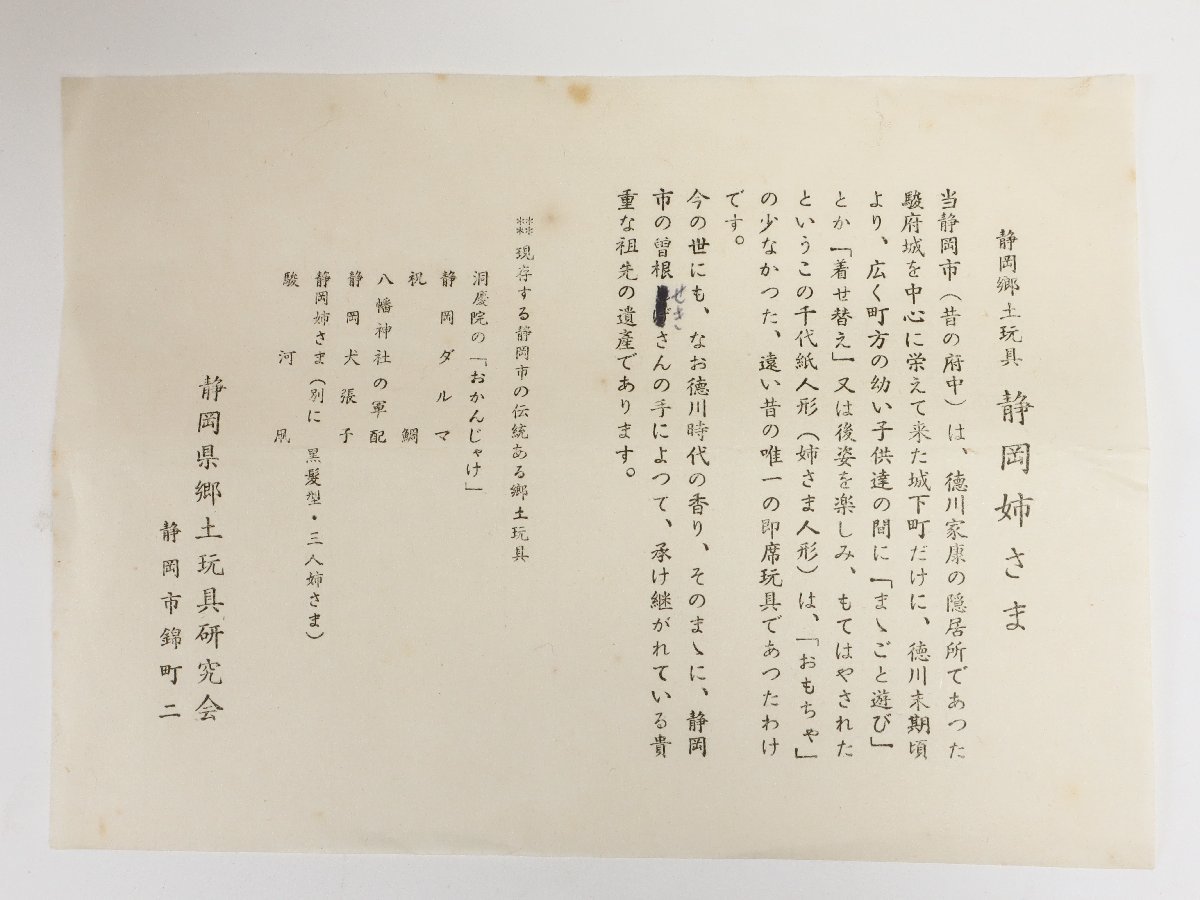 静岡郷土玩具 静岡姉さま
当静岡市(昔の府中)は、徳川家康の隠居所であつた
駿府城を中心に栄えて来た城下町だけに、徳川末期頃
より、広く町方の幼い子供達の間に「まゝごと遊び」
とか「着せ替え」又は後姿を楽しみ、もてはやされた
というこの千代紙人形(姉さま人形)は、「おもちゃ」
の少なかつた、遠い昔の唯一の即席玩具であつたわけ
です。
今の世にも、なお徳川時代の香り、そのまゝに、静岡
市の曽根せきさんの手によつて、承け継がれている貴
重な祖先の遺産であります。
⁑⁑現存する静岡市の伝統ある郷土玩具
洞慶院の「おかんじゃけ」
静岡ダルマ
祝鯛
八幡神社の軍配
静岡犬張子
静岡姉さま(別に 黒髪型・三人姉さま)
駿河凧
静岡県郷土玩具研究会
静岡市錦町二